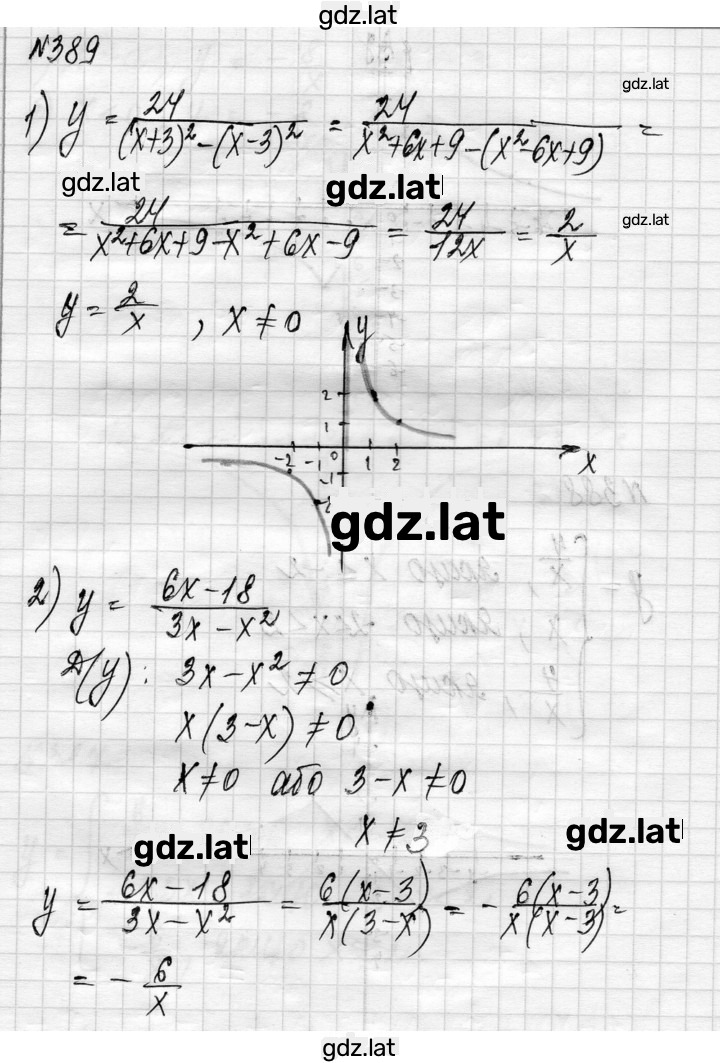 gdz.lat
№389
gdz.lat
1) y = 24/((x+3)² – (x–3)²) = 24/(x²+6x+9–(x²–6x+9)) =
gdz.lat gdz.lat gdz.lat
= 24/(x²+6x+9–x²+6x–9) = 24/(12x) = 2/x
y = 2/x , x ≠ 0
y
2
1
-2 -1 0 1 2 x
-1
-2
gdz.lat
2) y = (6x–18)/(3x–x²)
Д(y): 3x–x² ≠ 0
x(3–x) ≠ 0
x ≠ 0 або 3–x ≠ 0
x ≠ 3
gdz.lat gdz.lat
y = (6x–18)/(3x–x²) = 6(x–3)/(x(3–x)) = – 6(x–3)/(x(x–3)) =
= – 6/x
gdz.lat